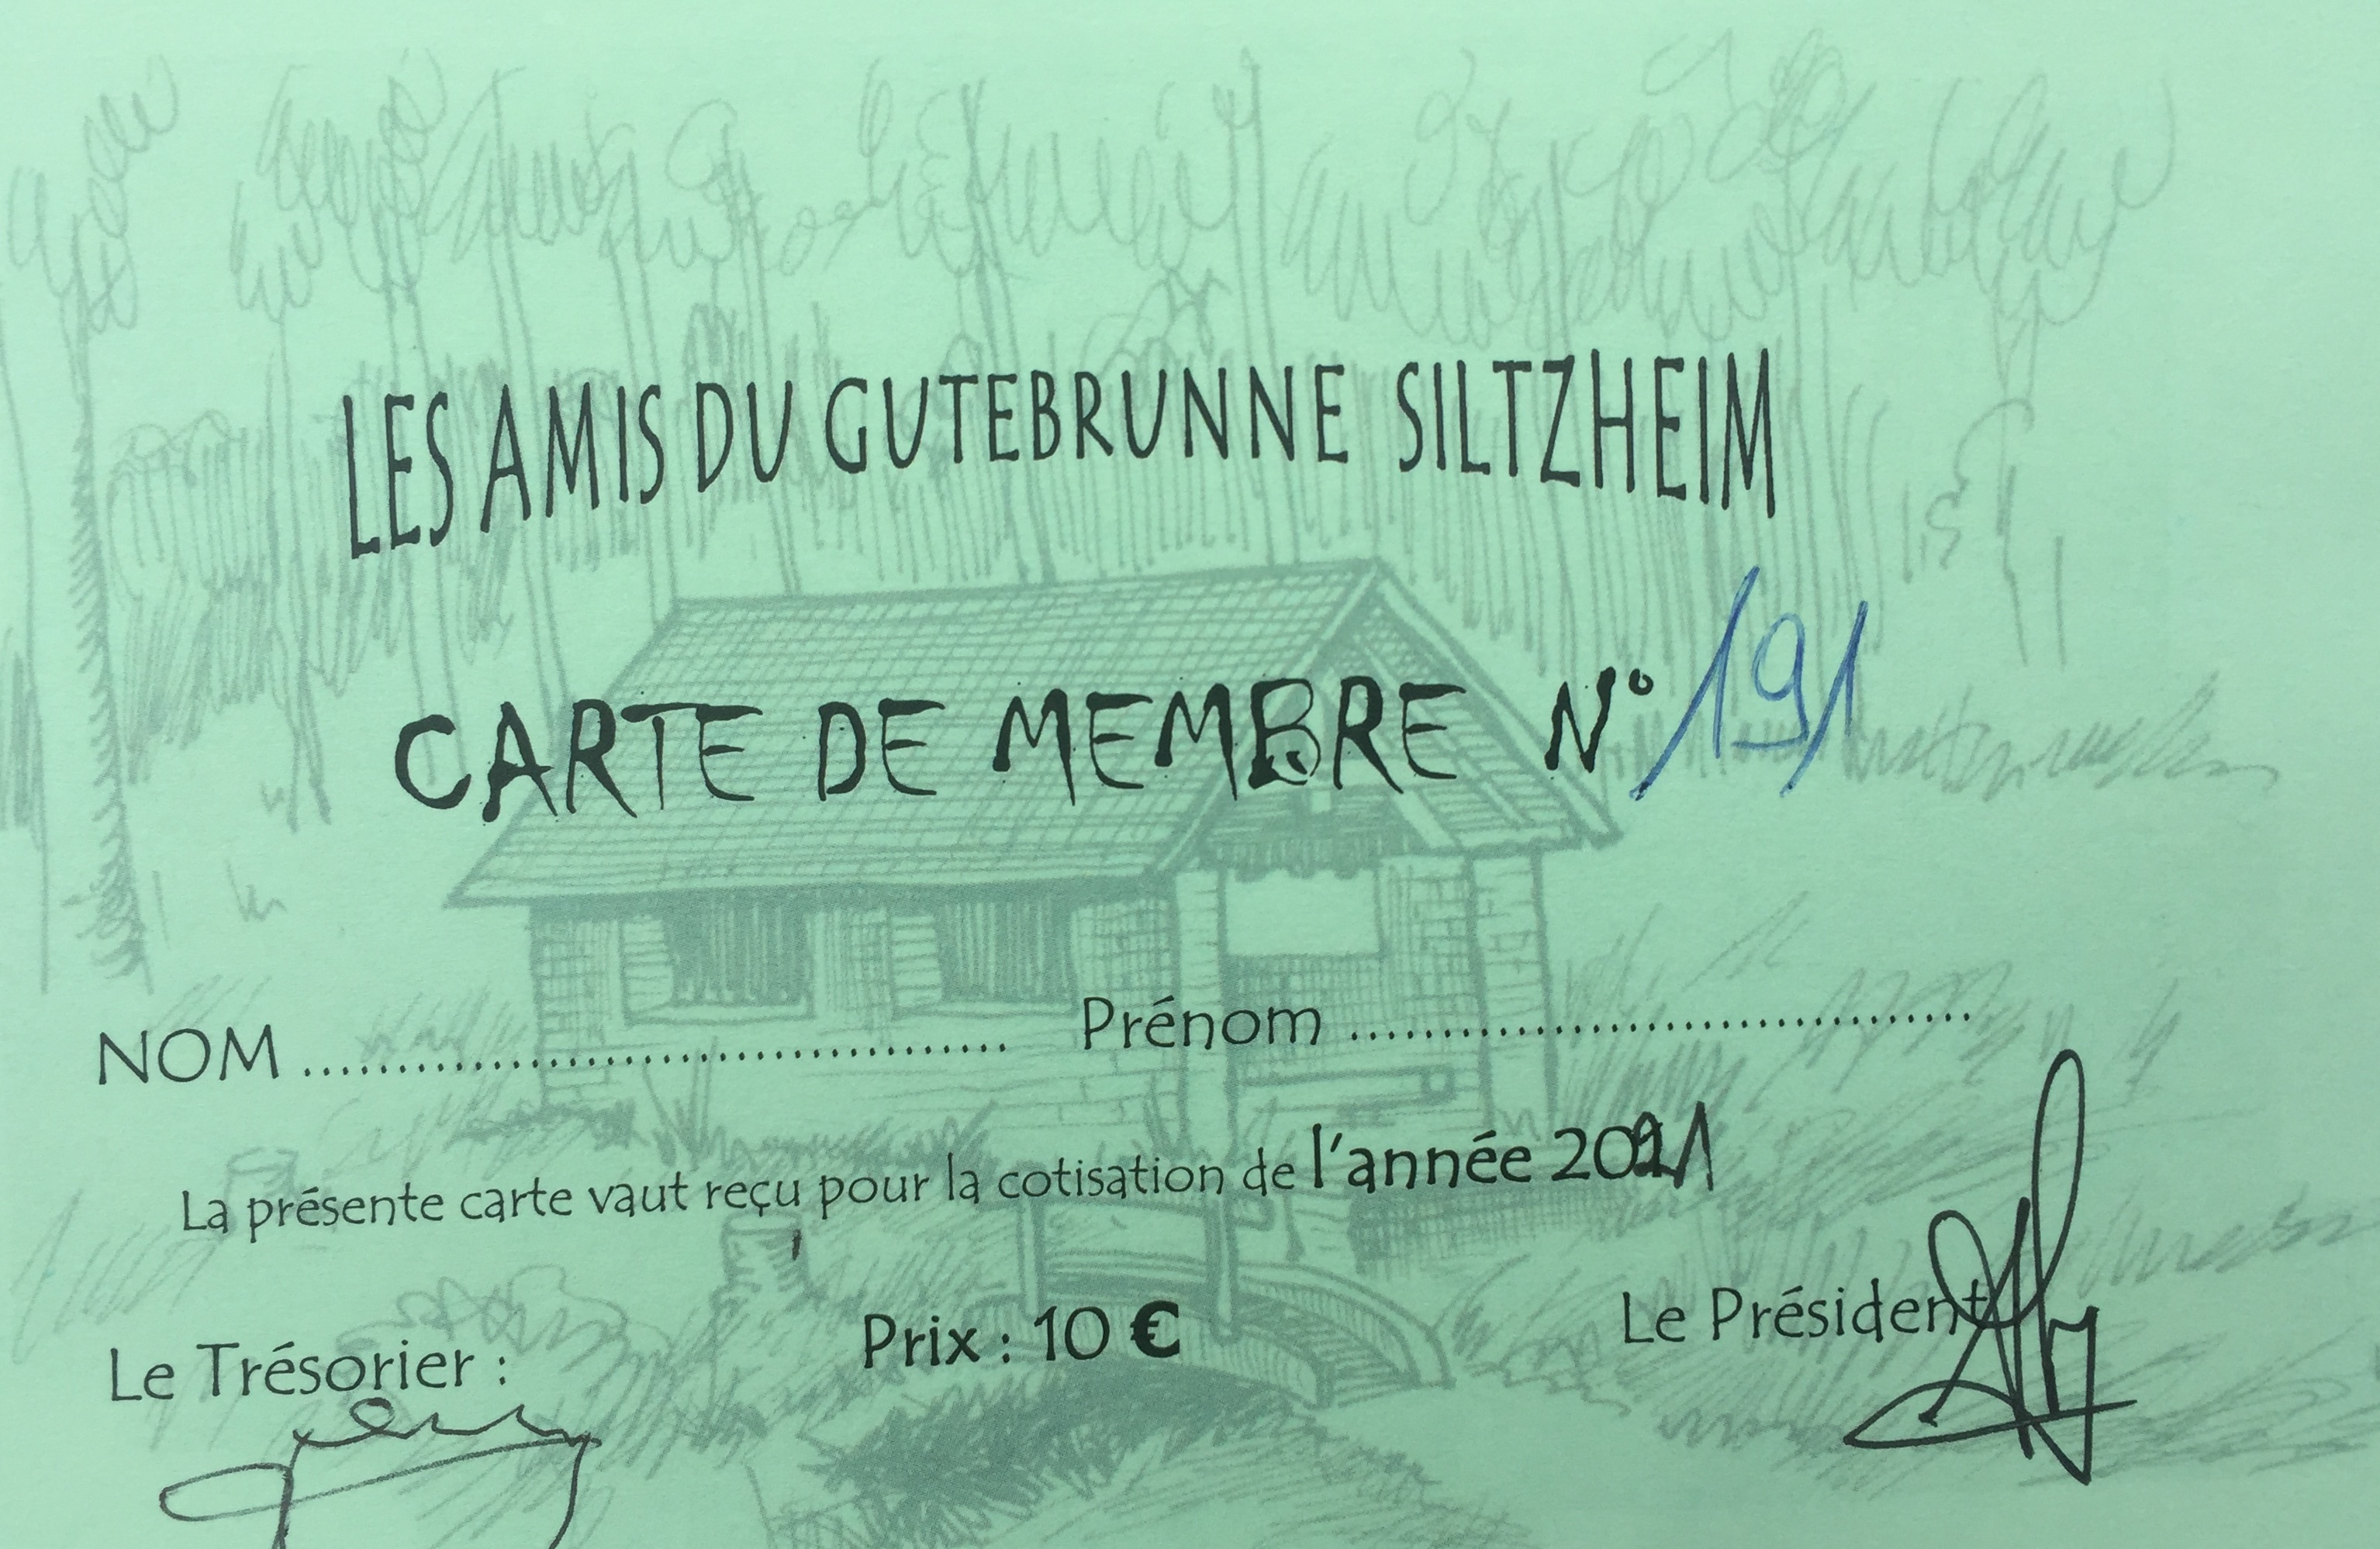 LES AMIS DU GUTEBRUNNE SILTZHEIM
CARTE DE MEMBRE N° 191
NOM .................................... Prénom ....................................
La présente carte vaut reçu pour la cotisation de l'année 2021
Le Trésorier : Prix : 10 € Le Président